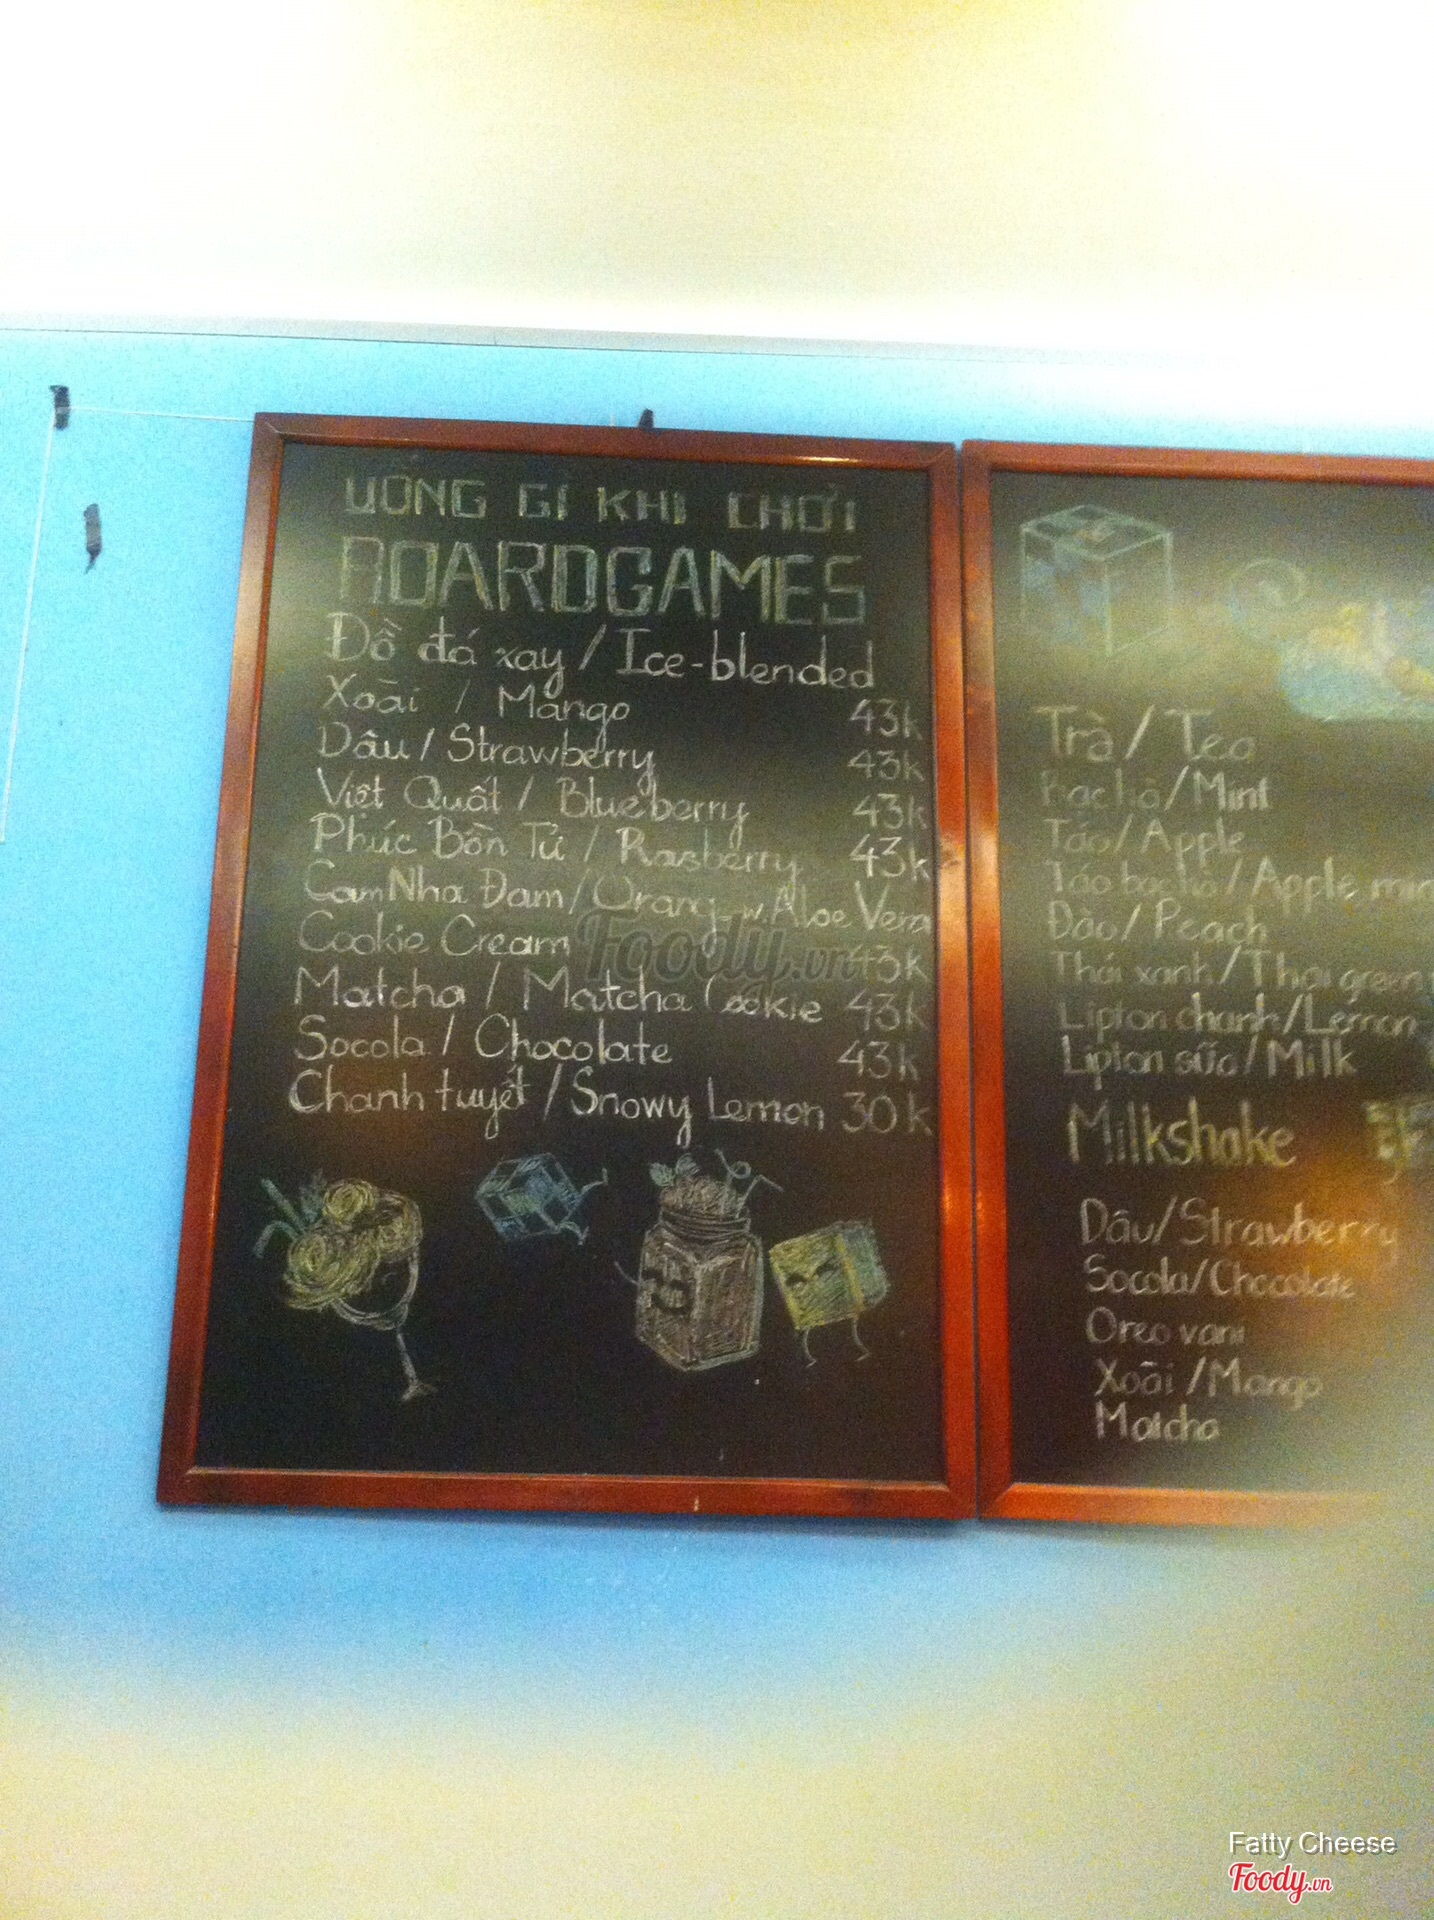 UỐNG GÌ KHI CHƠI
BOARDGAMES
Đồ đá xay / Ice-blended
Xoài / Mango 43k
Dâu / Strawberry 43k
Việt Quất / Blueberry 43k
Phúc Bồn Tử / Rasberry 43k
Cam Nha Đam / Orang w. Aloe Vera
Cookie Cream 43k
Matcha / Matcha Cookie 43k
Socola / Chocolate 43k
Chanh tuyết / Snowy Lemon 30k
Trà / Tea
Bạc hà / Mint
Táo / Apple
Táo bạc hà / Apple
Đào / Peach
Thái xanh / Thai green
Lipton chanh / Lemon
Lipton sữa / Milk
Milkshake
Dâu / Strawberry
Socola / Chocolate
Oreo vani
Xoài / Mango
Matcha
Foody.vn
Fatty Cheese
Foody.vn